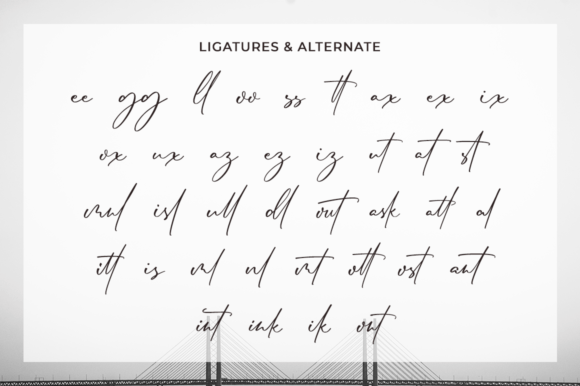 LIGATURES & ALTERNATE
ee gg ll oo ss tt ax ex ix
ox ux az ez iz ut at st
isl ull all out ask att al
itt is nl ott ost ant
int ink ik ont